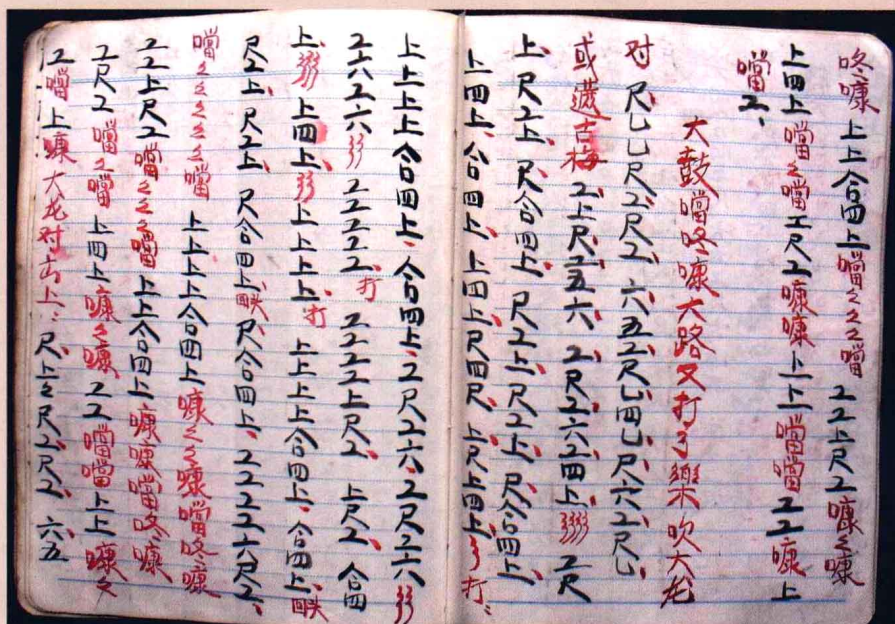 咚嗛 上上合四上噹々々々噹 工工上尺工嗛々嗛
上四上 噹々噹工尺工嗛嗛 上上噹噹工工嗛 上
噹工、
大鼓噹咚嗛大路又打了樂吹大龙
对 尺乚乚尺工尺工、六五工尺乚四乚、尺六工尺乚
或 工上尺工五六、工尺工六工四上、彡彡 工尺
上、尺工上、尺合四上、尺工上、尺工上、尺合四上、
上四上、合四上、上四上尺四尺、上尺上四上、彡打、
上上上上合四上、合四上、工尺工六、工尺工六彡彡
工六工六彡彡 工工工工工、打 工工工工上尺工、上尺工合四
上、彡彡 上四上、彡彡 上上上上上、打 上上上上合四上、合四上、
尺工上、尺工上、尺合四上、尺合四上、工工工工六尺工、
噹々々々々噹 上上上上合四上嗛々々嗛噹咚嗛
工工上尺工噹々々々噹 上上合四上、嗛嗛噹咚嗛
工尺工噹々噹 上四上嗛々嗛 工工噹噹上上嗛々
江噹上嗛大龙对 上、尺上々尺工尺工、六五